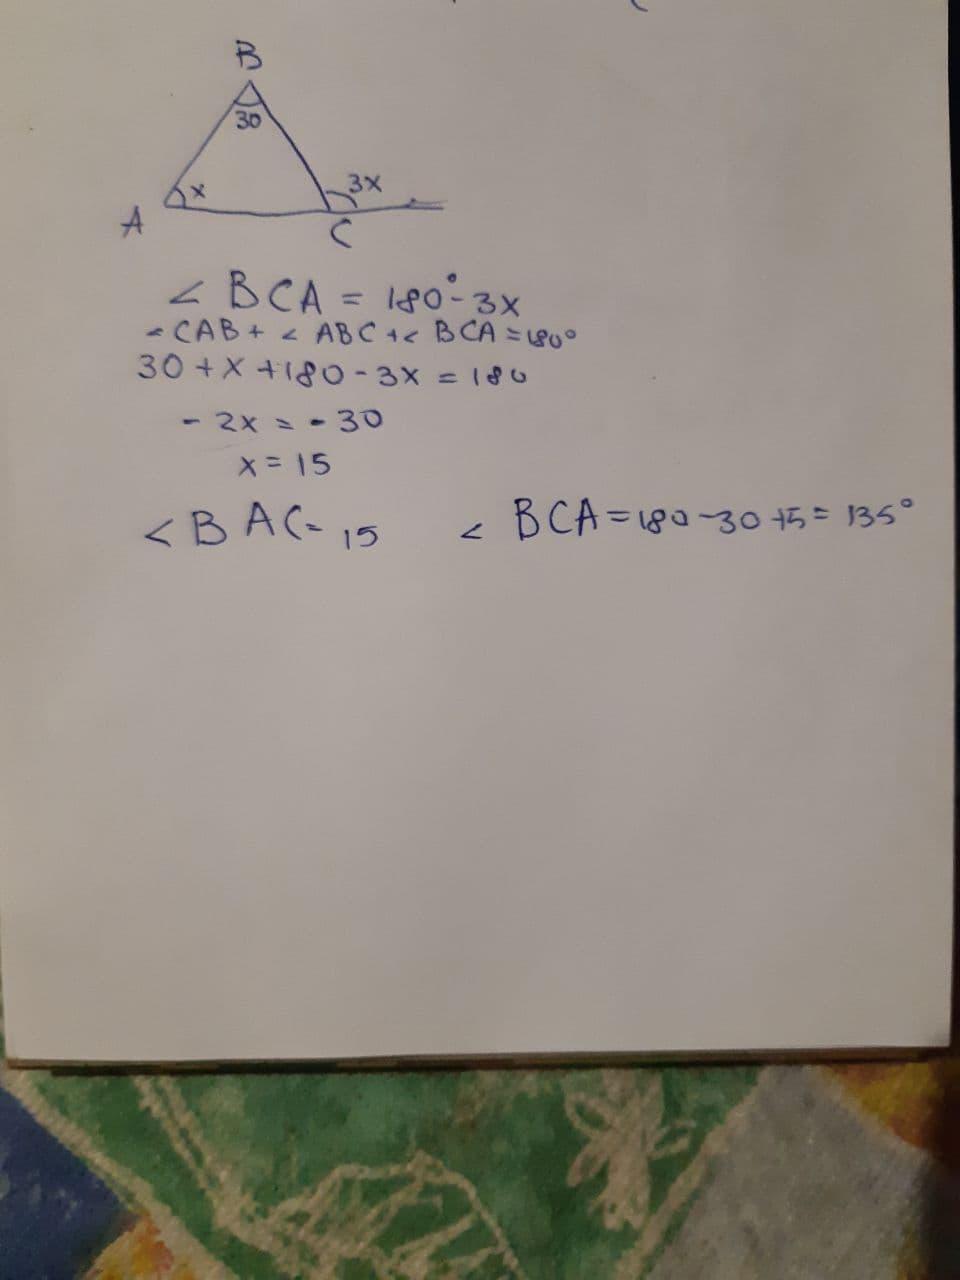 B
30
x
3x
A
C
< BCA = 180° - 3x
< CAB + < ABC + < BCA = 180°
30 + x + 180 - 3x = 180
- 2x = - 30
x = 15
< BAC = 15 < BCA = 180 - 30 + 15 = 135°